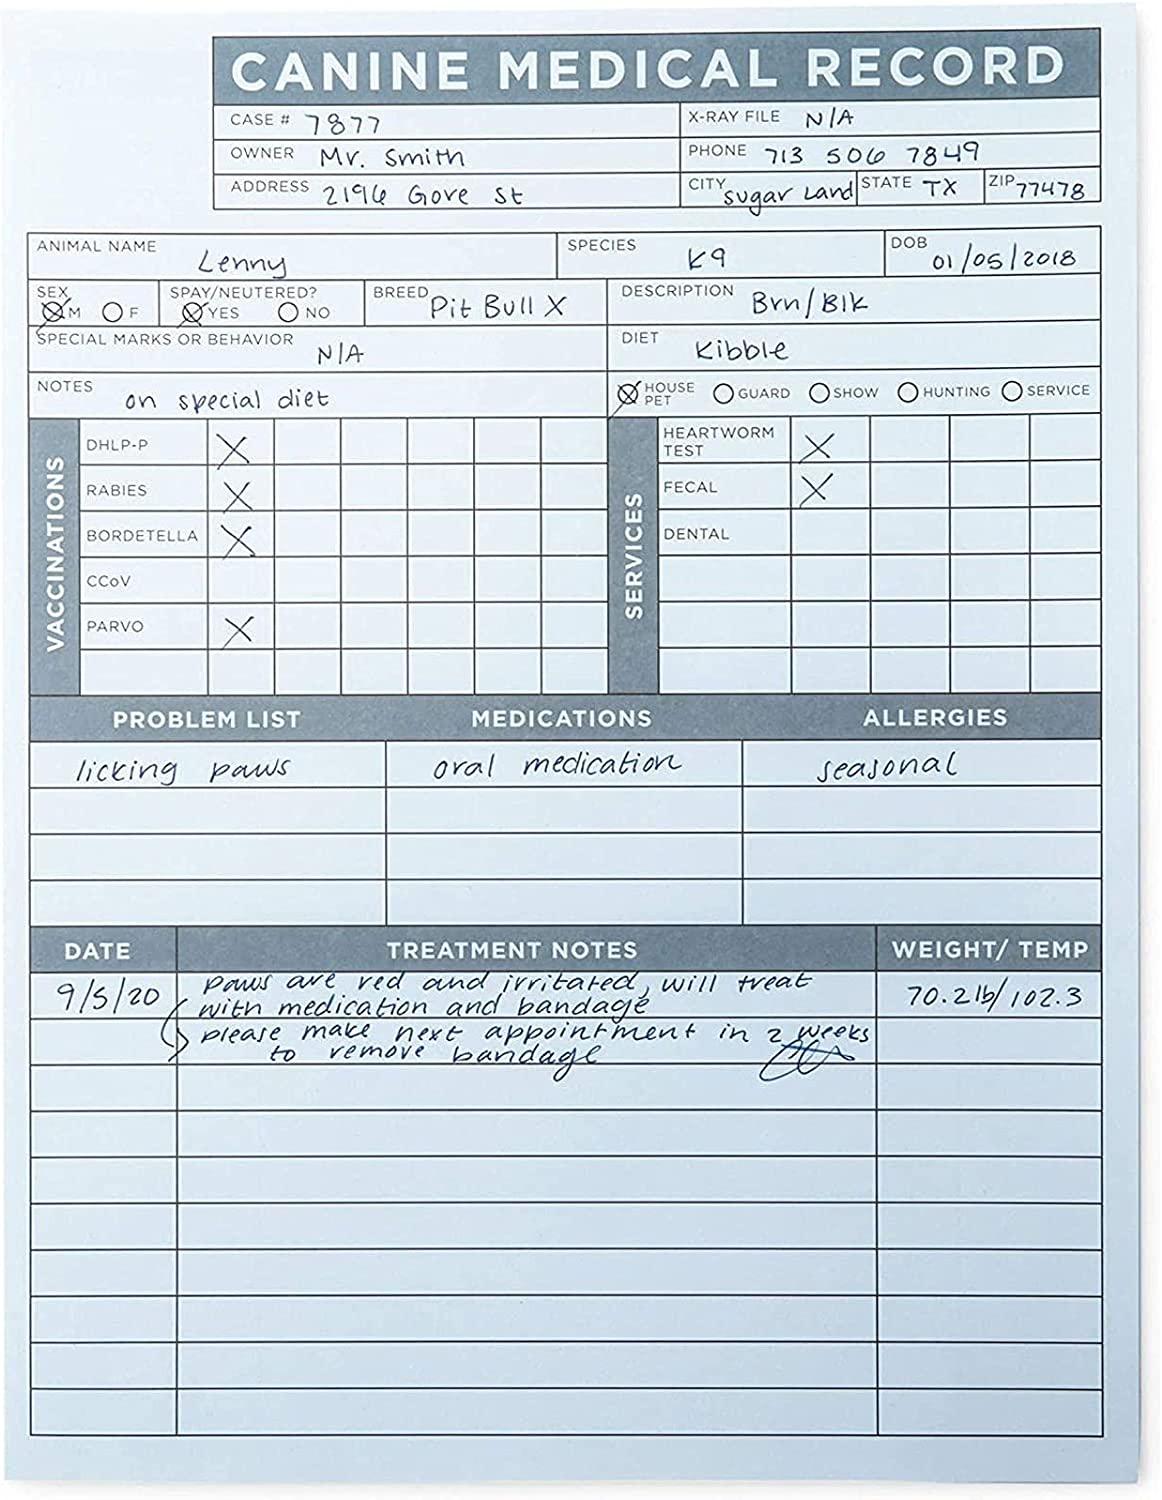 CANINE MEDICAL RECORD
CASE # 7877 X-RAY FILE N/A
OWNER Mr. Smith PHONE 713 506 7849
ADDRESS 2196 Gore St CITY Sugar Land STATE TX ZIP 77478
ANIMAL NAME Lenny SPECIES K9 DOB 01/05/2018
SEX M F SPAY/NEUTERED? YES NO BREED Pit Bull X DESCRIPTION Brn/Blk
SPECIAL MARKS OR BEHAVIOR N/A DIET Kibble
NOTES on special diet HOUSE PET GUARD SHOW HUNTING SERVICE
VACCINATIONS
DHLP-P X
RABIES X
BORDETELLA X
CCoV
PARVO X
SERVICES
HEARTWORM TEST X
FECAL X
DENTAL
PROBLEM LIST MEDICATIONS ALLERGIES
licking paws oral medication seasonal
DATE TREATMENT NOTES WEIGHT/ TEMP
9/5/20 paws are red and irritated, will treat 70.2lb/102.3
with medication and bandage
please make next appointment in 2 weeks
to remove bandage